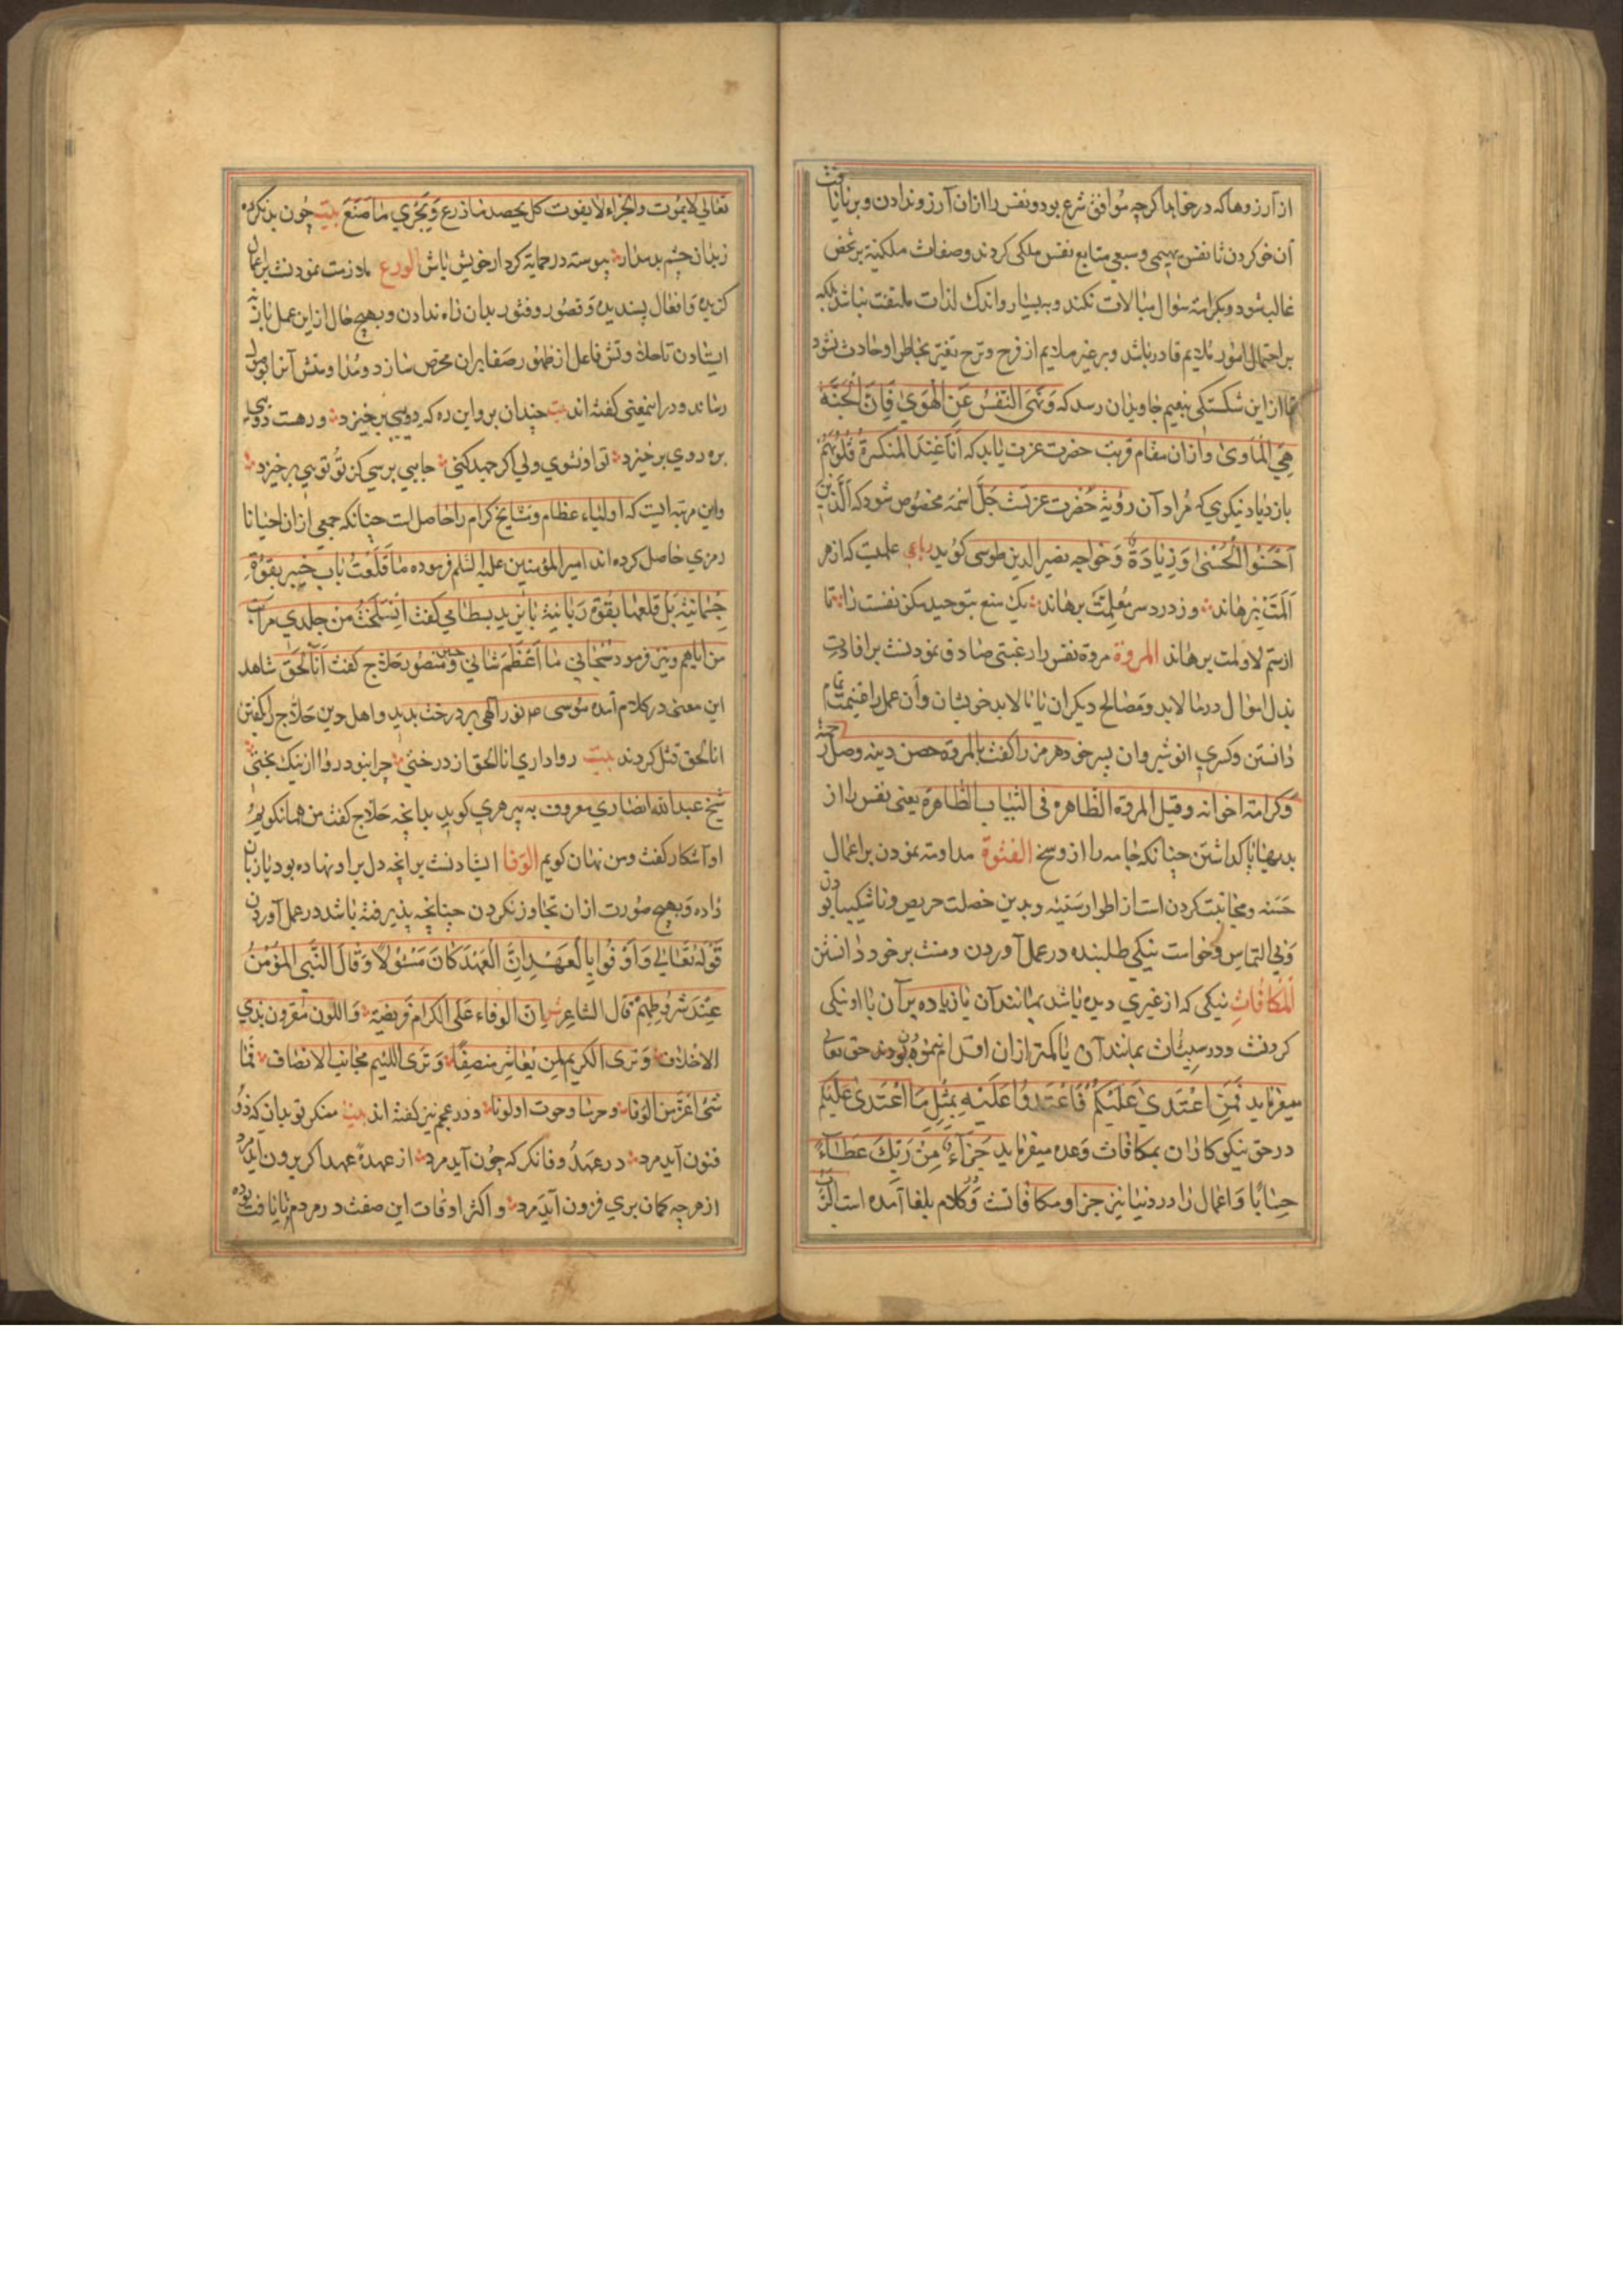 از آرزوها که در خواهد اگرچه موافق شرع بود و نفس را از آن آرزو ندادن و بر نایافت
آن خو کردن تا نفس بهیمی و سبعی متابع نفس ملکی کردند و صفات ملکیة بر شخص
غالب شود و بکرامة سؤال مبالات نکند و به بسیار و اندک لذات ملتفت نباشد بلکه
بر احتمال امور ملایم قادر باشد و بر غیر ملایم از فرح و ترح تغیر بخاطر او حادث نشود
تا از این شکستکی بنعیم جاویدان رسد که وَنَهَی النَّفْسَ عَنِ الْهَوَیٰ فَاِنَّ الْجَنَّةَ
هِیَ الْمَأوَیٰ و از آن مقام قربت حضرت عزت یابد که اَنَا عِنْدَ المنکسرة قُلُوبُهُم
بازدیاد نیکویی که مراد آن رؤیة حضرت عزتست جَلَّ اسْمُه مخصوص شود که اَلَّذِینَ
اَحْسَنُوا الْحُسْنیٰ وَزِیَادَةٌ وَ خواجه نصیر الدین طوسی کوید رباعی علمیت که از هر
اَلَمَت برهاند و ز درد سر معلمت برهاند یک منع بتوحید مکن نفست را تا
از ستم لا و لمت برهاند المروة مروة نفس را رغبتی صادق نمودنست بر افادت
بذل اموال در مالابد و مصالح دیکران یا مالابد خویشان و آن عمل را غنیمت تمام
دانستن و کسری انوشیروان پسر خود هرمز را کفت المروة حصن دینه وصل رحمه
وکرامة اخوانه وقیل المروة الظاهرة فی الثیاب الطاهرة یعنی نفس را از
بدیها پاک داشتن چنانکه جامه را از وسخ الفتوة مداومة نمودن بر اعمال
حَسَنه و مجانبت کردن است از اطوار سَیّئه و بدین خصلت حریص و ناشکیبا بودن
وَبی التماس و خواست نیکی طلبنده در عمل آوردن و منت بر خود دانستن
اَلْمُکافات نیکی که از غیری دیده باشد بمانند آن یا زیاده بر آن با او نیکی
کردنست و در سیئات بمانند آن یا کمتر از آن اقدام نمودن بود حق تعالی
میفرماید فَمَنِ اعْتَدَیٰ عَلَیْکُمْ فَاعْتَدُوا عَلَیْهِ بِمِثْلِ مَا اعْتَدَیٰ عَلَیْکُم
در حق نیکوکاران بمکافات وعده میفرماید جَزَاءً مِنْ رَبِّکَ عَطَاءً
حِسَابًا وَ اعمال را در دنیا نیز جزا و مکافاتست وَ کلام بلغا آمده است الرَّبُّ
تعالی لایموت والجزاء لایفوت کل یحصد ما زرع وَیُجْزَی ما صَنَعَ بیت چون بد کرده
زبدان چشم بد مدار پیوسته در حمایة کردار خویش باش الورع ملازمت نمودنست بر اعمال
کزیده و افعال پسندیده وَ قصور و فتور بدان راه ندادن و بهیچ حال از این عمل باز
رساند و در اینمعنی کفته اند بیت چندان برو این ره که دویی برخیزد ور هست دویی
بره روی برخیزد تو او نشوی ولی اکر جهد کنی جایی برسی کز تو تویی برخیزد
و این مرتبه ایست که اولیاء عظام و مشایخ کرام را حاصل است چنانکه جمعی از آن احیانا
رمزی حاصل کرده اند امیر المؤمنین علیه السلم فرموده مَا قَلَعْتُ بَاب خیبر بقوّة
جسمانیة بَل قلعتها بقوّة رَبانیة بایزید بسطامی کفت اِنْسَلَخْتُ مِنْ جلدی فرایت
من انا هم و نیز فرمود سبحانی مَا اَعْظَمَ شانی وَ حسین منصور حلاج کفت اَنَا الْحَقّ شاهد
این معنی در کلام آمده موسی نور الهی بر درخت بدید و اهل دین حلاج را بکفتن
انا الحق قتل کردند بیت رواداری انا الحق از درختی چرا نبود روا از نیک بختی
شیخ عبد الله انصاری معروف به پیر هری کوید بدانچه حلاج کفت من همان کویم
او آشکار کفت و من نهان کویم الوفا ایستادنست بر انچه دل بر او نهاده بود یا زبان
داده وَ بهیچ صورت از آن تجاوز نکردن چنانچه پذیرفته باشد در عمل آوردن
قَوْلُهُ تَعَالٰی وَاَوْفُوا بِالْعَهْدِ اِنَّ الْعَهْدَ کَانَ مَسْئُولًا وَقَالَ النَّبِی المُؤْمِنُ
عِنْدَ شُرُوطِهِمْ قال الشاعر شعر اِنّ الوفاء عَلَی الکرام فَریضَة وَ اللؤم مقرون بذی
الاخلاف وَتری الکریم لمن یُعاشر منصفًا وَتری اللئیم مجانب الانصاف فما
شئ اعَزّ من الوفا و در عجم نیز کفته اند بیت منکر تو بدان که ذو
فنون آید مرد در عهد وفا نکر که چون آید مرد از عهدهٔ عهد اکر برون آید مرد
از هرچه کمان بری فزون آید مرد و اکثر اوقات این صفت در مردم نایافت بوده